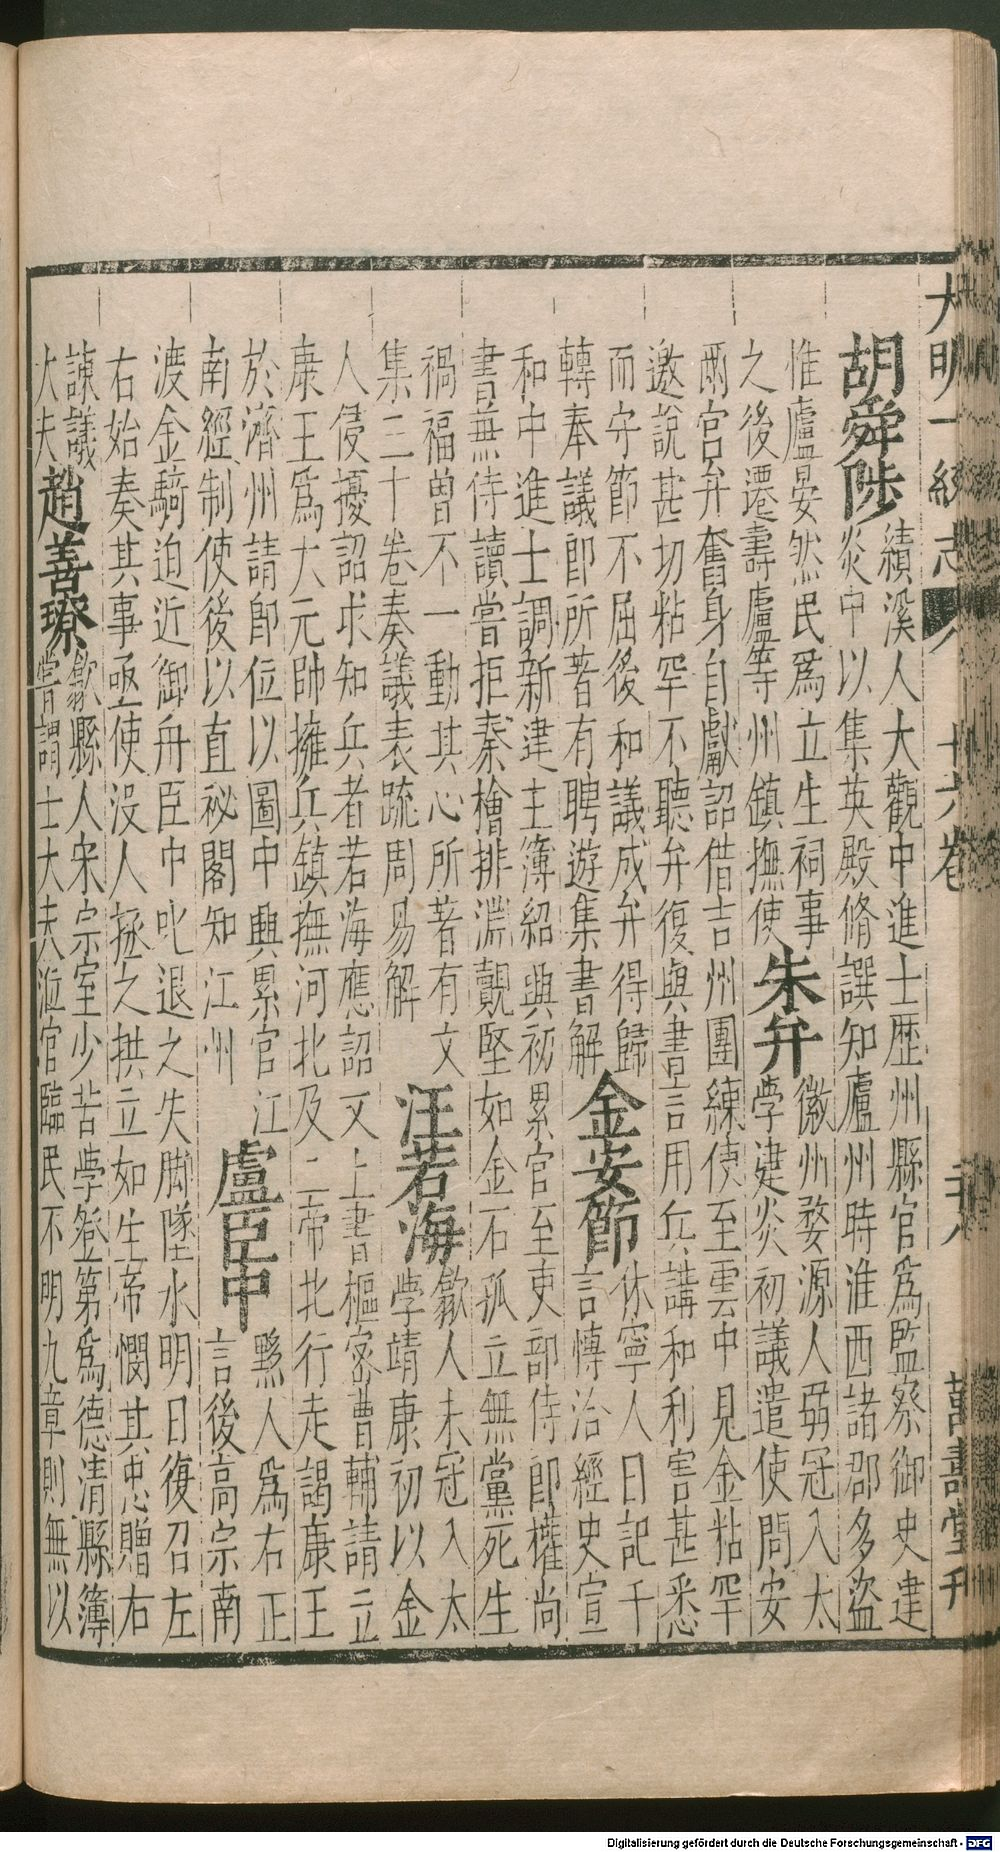 大明一統志 八 十六卷 二十八 萬壽堂刊
胡舜陟
績溪人大觀中進士歷州縣官爲監察御史建
炎中以集英殿脩譔知廬州時淮西諸郡多盜
惟廬晏然民爲立生祠事
之後遷壽廬等州鎮撫使
朱弁
徽州婺源人弱冠入太
學建炎初議遣使問安
兩宮弁奮身自獻詔借吉州團練使至雲中見金粘罕
邀說甚切粘罕不聽弁復與書言用兵講和利害甚悉
而守節不屈後和議成弁得歸
轉奉議郎所著有聘遊集書解
金安節
休寧人日記千
言愽洽經史宣
和中進士調新建主簿紹興初累官至吏部侍郎權尚
書兼侍讀嘗拒秦檜排淵覿堅如金石孤立無黨死生
禍福曾不一動其心所著有文
集三十卷奏議表疏周易解
汪若海
歙人未冠入太
學靖康初以金
人侵擾詔求知兵者若海應詔又上書樞密曹輔請立
康王爲大元帥擁兵鎮撫河北及二帝北行走謁康王
於濟州請即位以圖中興累官江
南經制使後以直祕閣知江州
盧臣中
黟人爲右正
言後高宗南
渡金騎迫近御舟臣中叱退之失脚墜水明日復召左
右始奏其事亟使沒人拯之拱立如生帝憫其忠贈右
諫議
大夫
趙善璙
歙縣人宋宗室少苦學登第爲德清縣簿
嘗謂士大夫涖官臨民不明九章則無以
Digitalisierung gefördert durch die Deutsche Forschungsgemeinschaft - DFG